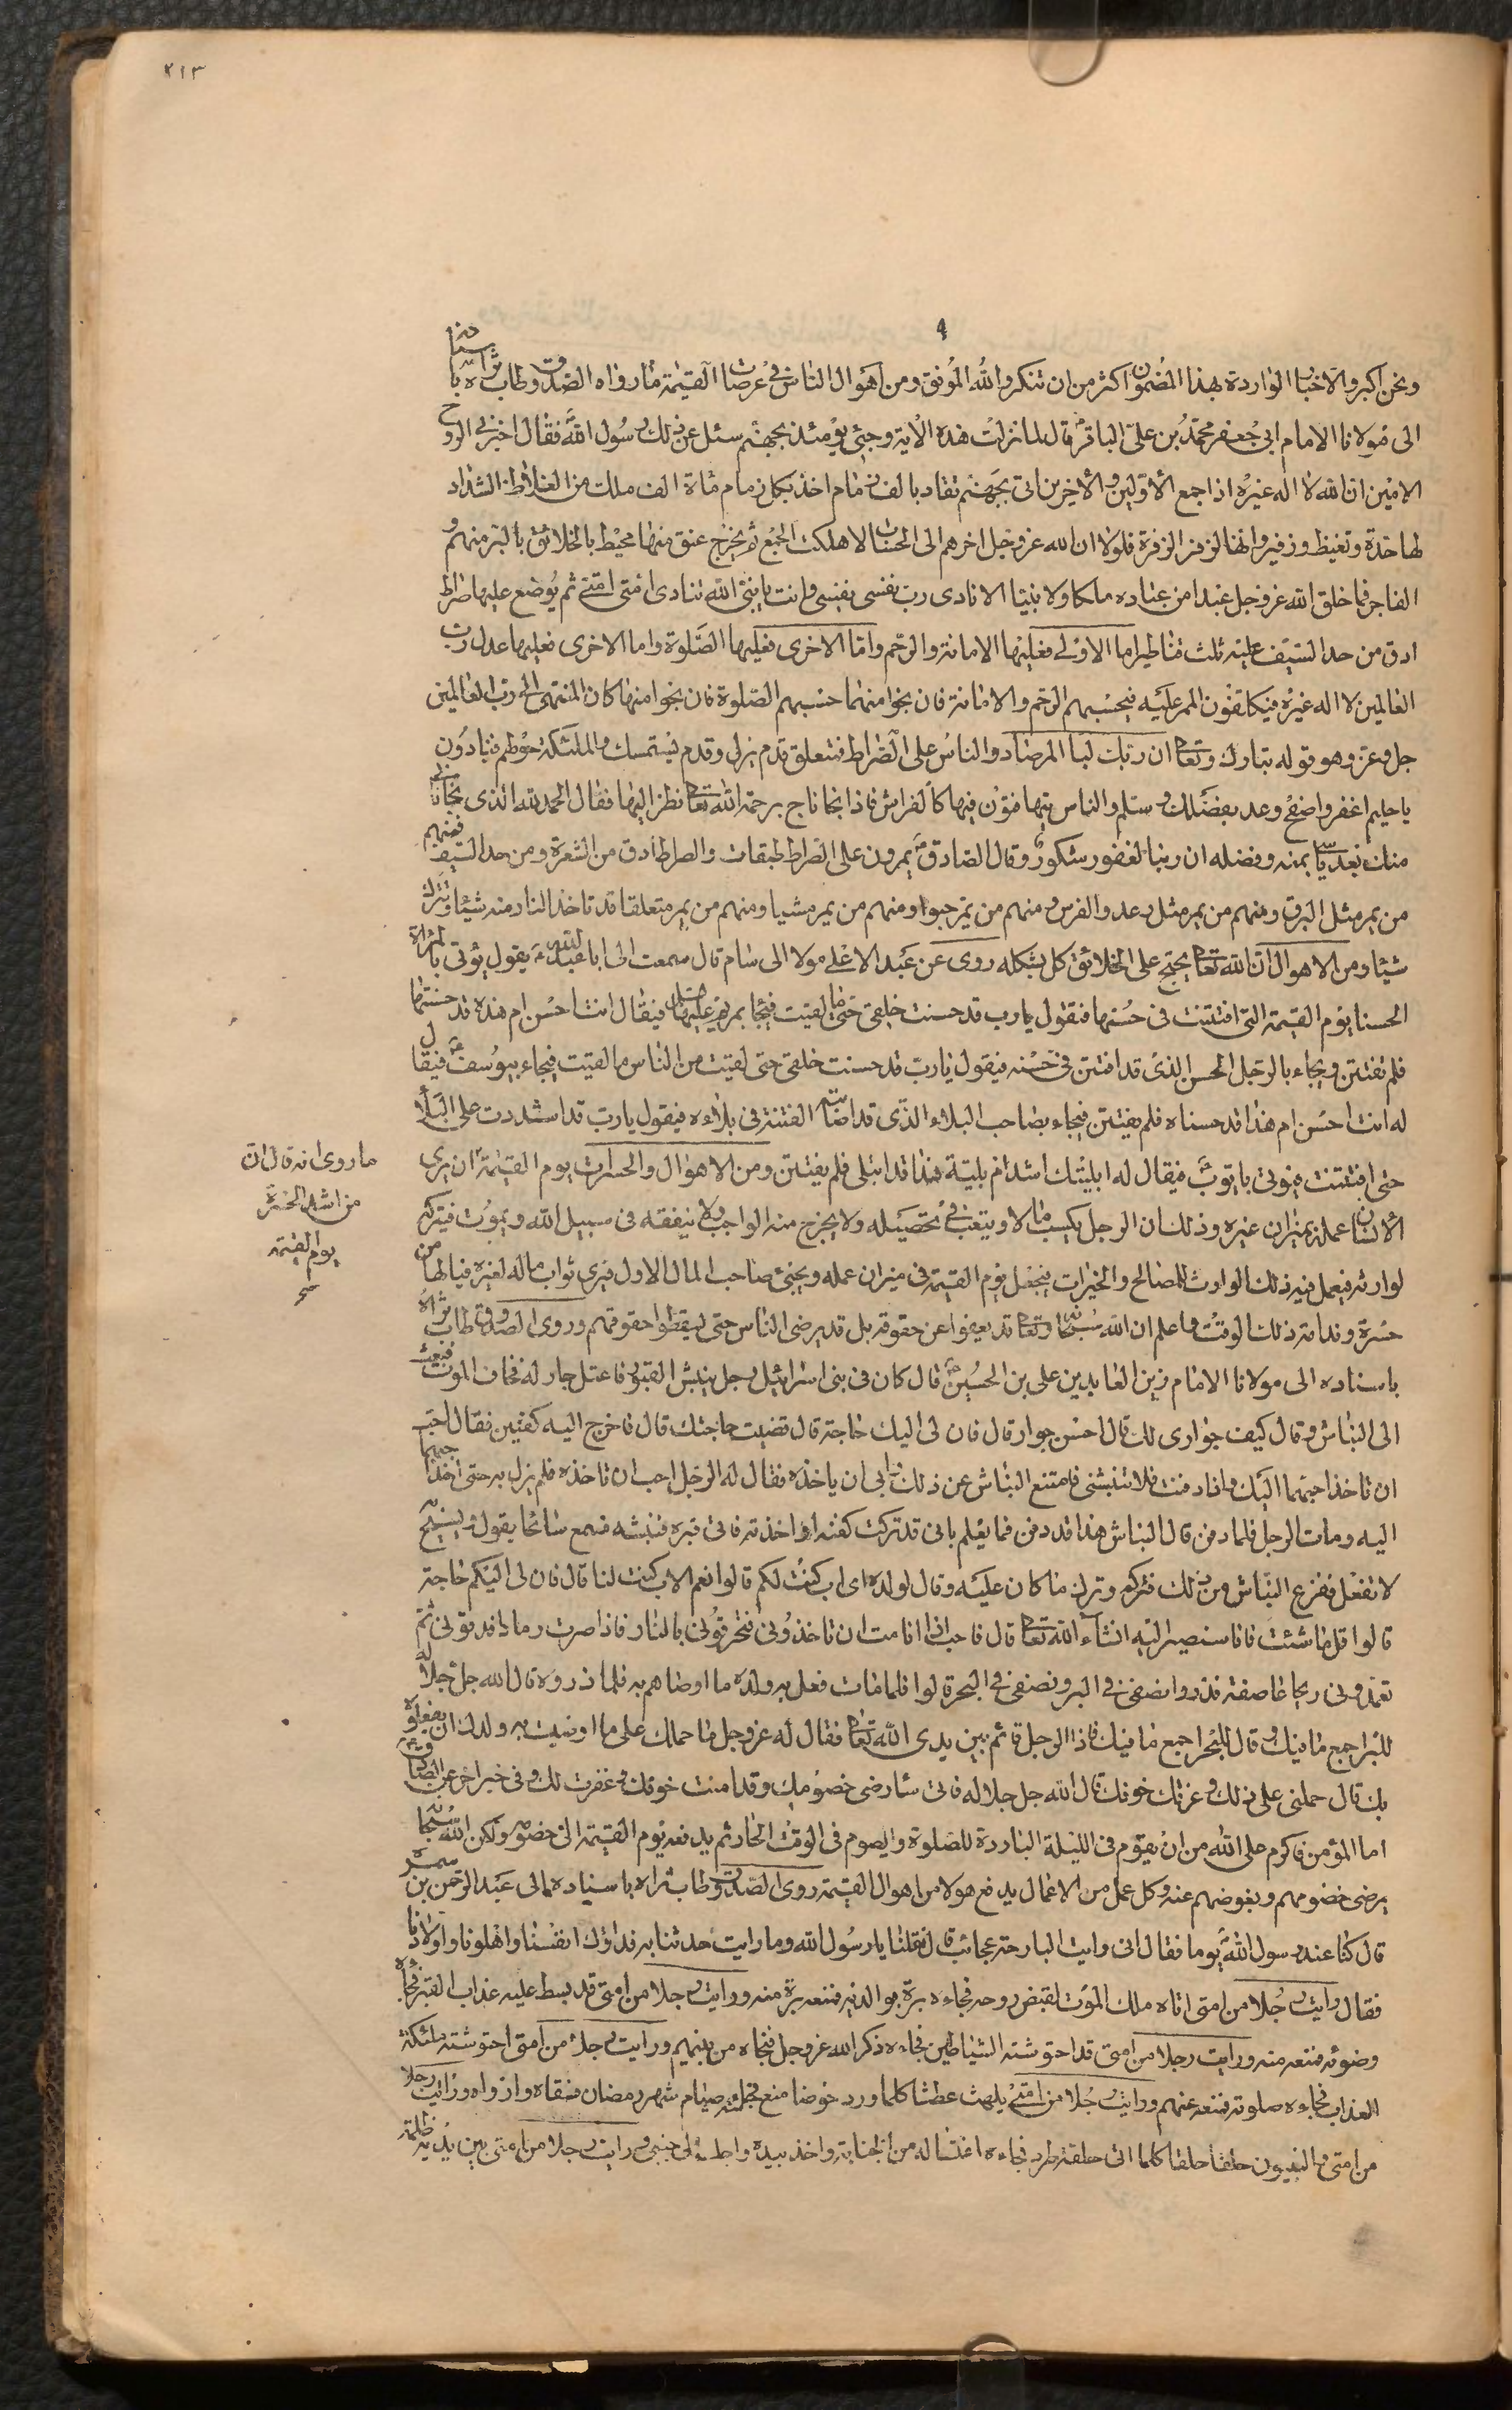 ٢١٣
ونحن اكبر والاخبار الواردة بهذا المضمون اكثر من ان تنكر والله الموفق ومن اهوال الناس في عرصات القيمة ما رواه الصدوق طاب ثراه باسناده
الى مولانا الامام ابي جعفر محمد بن علي الباقر قال لما نزلت هذه الاية وجئ يومئذ بجهنم سئل عن ذلك رسول الله فقال اخبرني الروح
الامين ان الله لا اله غيره اذا جمع الأولين والأخرين اتى بجهنم تقاد بالف زمام اخذ بكل زمام مائة الف ملك من الغلاظ الشداد
لها هدة وتغيظ وزفير وانها لتزفر الزفرة فلولا ان الله عز وجل اخرهم الى الحساب لاهلكت الجمع ثم يخرج عنق منها محيط بالخلائق بالبر منهم و
الفاجر فما خلق الله عز وجل عبدا من عباده ملكا ولا نبيا الا نادى رب نفسي نفسي وانت يا نبي الله تنادى امتي امتي ثم يوضع عليها صراط
ادق من حد السيف عليه ثلث قناطر اما الاولى فعليها الامانة والرحم واما الاخرى فعليها الصلوة واما الاخرى فعليها عدل رب
العالمين لا اله غيره فيكلفون الممر عليه فيحبسهم الرحم والامانة فان نجوا منهما حبسهم الصلوة فان نجوا منها كان المنتهى الى رب العالمين
جل وعز وهو قوله تبارك وتعالى ان ربك لبا المرصاد والناس على الصراط فمتعلق وقدم تزل وقدم تستمسك والملئكة حولهم ينادون
يا حليم اغفر واصفح وعد بفضلك وسلم والناس يتهافتون فيها كالفراش فاذا نجا ناج برحمة الله تعالى نظر اليها فقال الحمد لله الذي نجانى
منك بعد ياس بمنه وفضله ان ربنا لغفور شكور وقال الصادق يمرون على الصراط طبقات والصراط ادق من الشعرة ومن حد السيف فمنهم
من يمر مثل البرق ومنهم من يمر مثل عدو الفرس ومنهم من يمر حبوا ومنهم من يمر مشيا ومنهم من يمر متعلقا قد تاخذ النار منه شيئا وتترك
شيئا ومن الاهوال ان الله تعالى يحتج على الخلائق كل بشكله روى عن عبد الاعلى مولا ال سام قال سمعت ابا عبد الله يقول يؤتى بالمراة
الحسنا يوم القيمة التي افتتنت في حسنها فتقول يا رب قد حسنت خلقي حتى لقيت ما لقيت فيجا بمريم عليها السلام فيقال انت احسن ام هذه قد حسنتها
فلم تفتتن ويجاء بالرجل الحسن الذي قد افتتن في حسنه فيقول يا رب قد حسنت خلقي حتى لقيت من الناس ما لقيت فيجاء بيوسف فيقال
له انت احسن ام هذا قد حسناه فلم يفتتن فيجاء بصاحب البلاء الذي قد اصابته الفتنة في بلاءه فيقول يا رب قد اشددت على البلأ
حتى افتتنت فيوتى بايوب فيقال له ابليتك اشد ام بلية هذا قد ابتلى فلم يفتتن ومن الاهوال والحسرات يوم القيمة ان يرى
الأنسان عمله بميزان غيره وذلك ان الرجل يكسب مالا ويتعب في تحصيله ولا يخرج منه الواجب ولا ينفقه في سبيل الله ويموت فيتركه
لوارثه فيعمل فيه ذلك الوارث المصالح والخيرات فيجعل يوم القيمة في ميزان عمله ويجئ صاحب المال الاول فيرى ثواب ماله لغيره فيا لها من
حسرة وندامة ذلك الوقت واعلم ان الله سبحانه وتعالى قد يعفوا عن حقوقه بل قد يرضى الناس حتى يسقطوا حقوقهم وروى الصدوق طاب ثراه
باسناده الى مولانا الامام زين العابدين علي بن الحسين قال كان في بنى اسرائيل رجل ينبش القبور فاعتل جار له فخاف الموت فبعث
الى النباش وقال كيف جوارى لك قال احسن جوار قال فان لى اليك حاجة قال قضيت حاجتك قال فاخرج اليه كفنين فقال احب
ان تاخذ احبهما اليك واذا دفنت فلا تنبشنى فامتنع النباش عن ذلك وابى ان ياخذه فقال له الرجل احب ان تاخذه فلم يزل به حتى اخذ احبهما
اليه ومات الرجل فلما دفن قال النباش هذا قد دفن فما يعلم بانى قد تركت كفنه او اخذته فاتى قبره فنبشه فسمع صائحا يقول ويصيح
لا تفعل ففزع النباش من ذلك فتركه وترك ما كان عليه وقال لولده اى اب كنت لكم قالوا نعم الاب كنت لنا قال فان لى اليكم حاجة
قالوا قل ما شئت فانا سنصير اليه انشاء الله تعالى قال فاحب اذا انا مت ان تاخذونى فتحرقونى بالنار فاذا صرت رمادا فدقونى ثم
تعمدوا بى ريحا عاصفة فذروا نصفى في البر ونصفى في البحر قالوا فلما مات فعل به ولده ما اوصاهم به فلما ذروه قال الله جل جلاله
للبر اجمع ما فيك وقال للبحر اجمع ما فيك فاذا الرجل قائم بين يدى الله تعالى فقال له عز وجل ما حملك على ما اوصيت به ولدك ان يفعلوه
بك قال حملنى على ذلك وعزتك خوفك قال الله جل جلاله فانى سارضى خصومك وقد امنت خوفك وغفرت لك وفي خبر اخر عن الصادق
اما المؤمن فاكرم على الله من ان يقوم في الليلة الباردة للصلوة ويصوم في الوقت الحار ثم يدفعه يوم القيمة الى خصومه ولكن الله سبحانه
يرضى خصومهم ويعوضهم عنه وكل عمل من الاعمال يدفع هولا من اهوال القيمة روى الصدوق طاب ثراه باسناده الى عبد الرحمن بن سمرة
قال كنا عند رسول الله يوما فقال انى رايت البارحة عجائب قال فقلنا يا رسول الله وما رايت حدثنا به فداؤك انفسنا واهلونا واولادنا
فقال رايت رجلا من امتى اتاه ملك الموت لقبض روحه فجاءه بره بوالديه فمنعه منه ورايت رجلا من امتى قد بسط عليه عذاب القبر فجاءه
وضوئه فمنعه منه ورايت رجلا من امتى قد احتوشته الشياطين فجاءه ذكر الله عز وجل فنجاه من بينهم ورايت رجلا من امتى احتوشته ملئكة
العذاب فجاءه صلوته فمنعه عنهم ورايت رجلا من امتى يلهث عطشا كلما ورد حوضا منع فجائه صيام شهر رمضان فسقاه وارواه ورايت رجلا
من امتى والنبيون حلقا حلقا كلما اتى حلقة طرد فجاءه اغتساله من الجنابة واخذ بيده واجلسه الى جنبى ورايت رجلا من امتى بين يديه ظلمة
ما روى انه قال ان
من اشد الحسرة
يوم القيمة